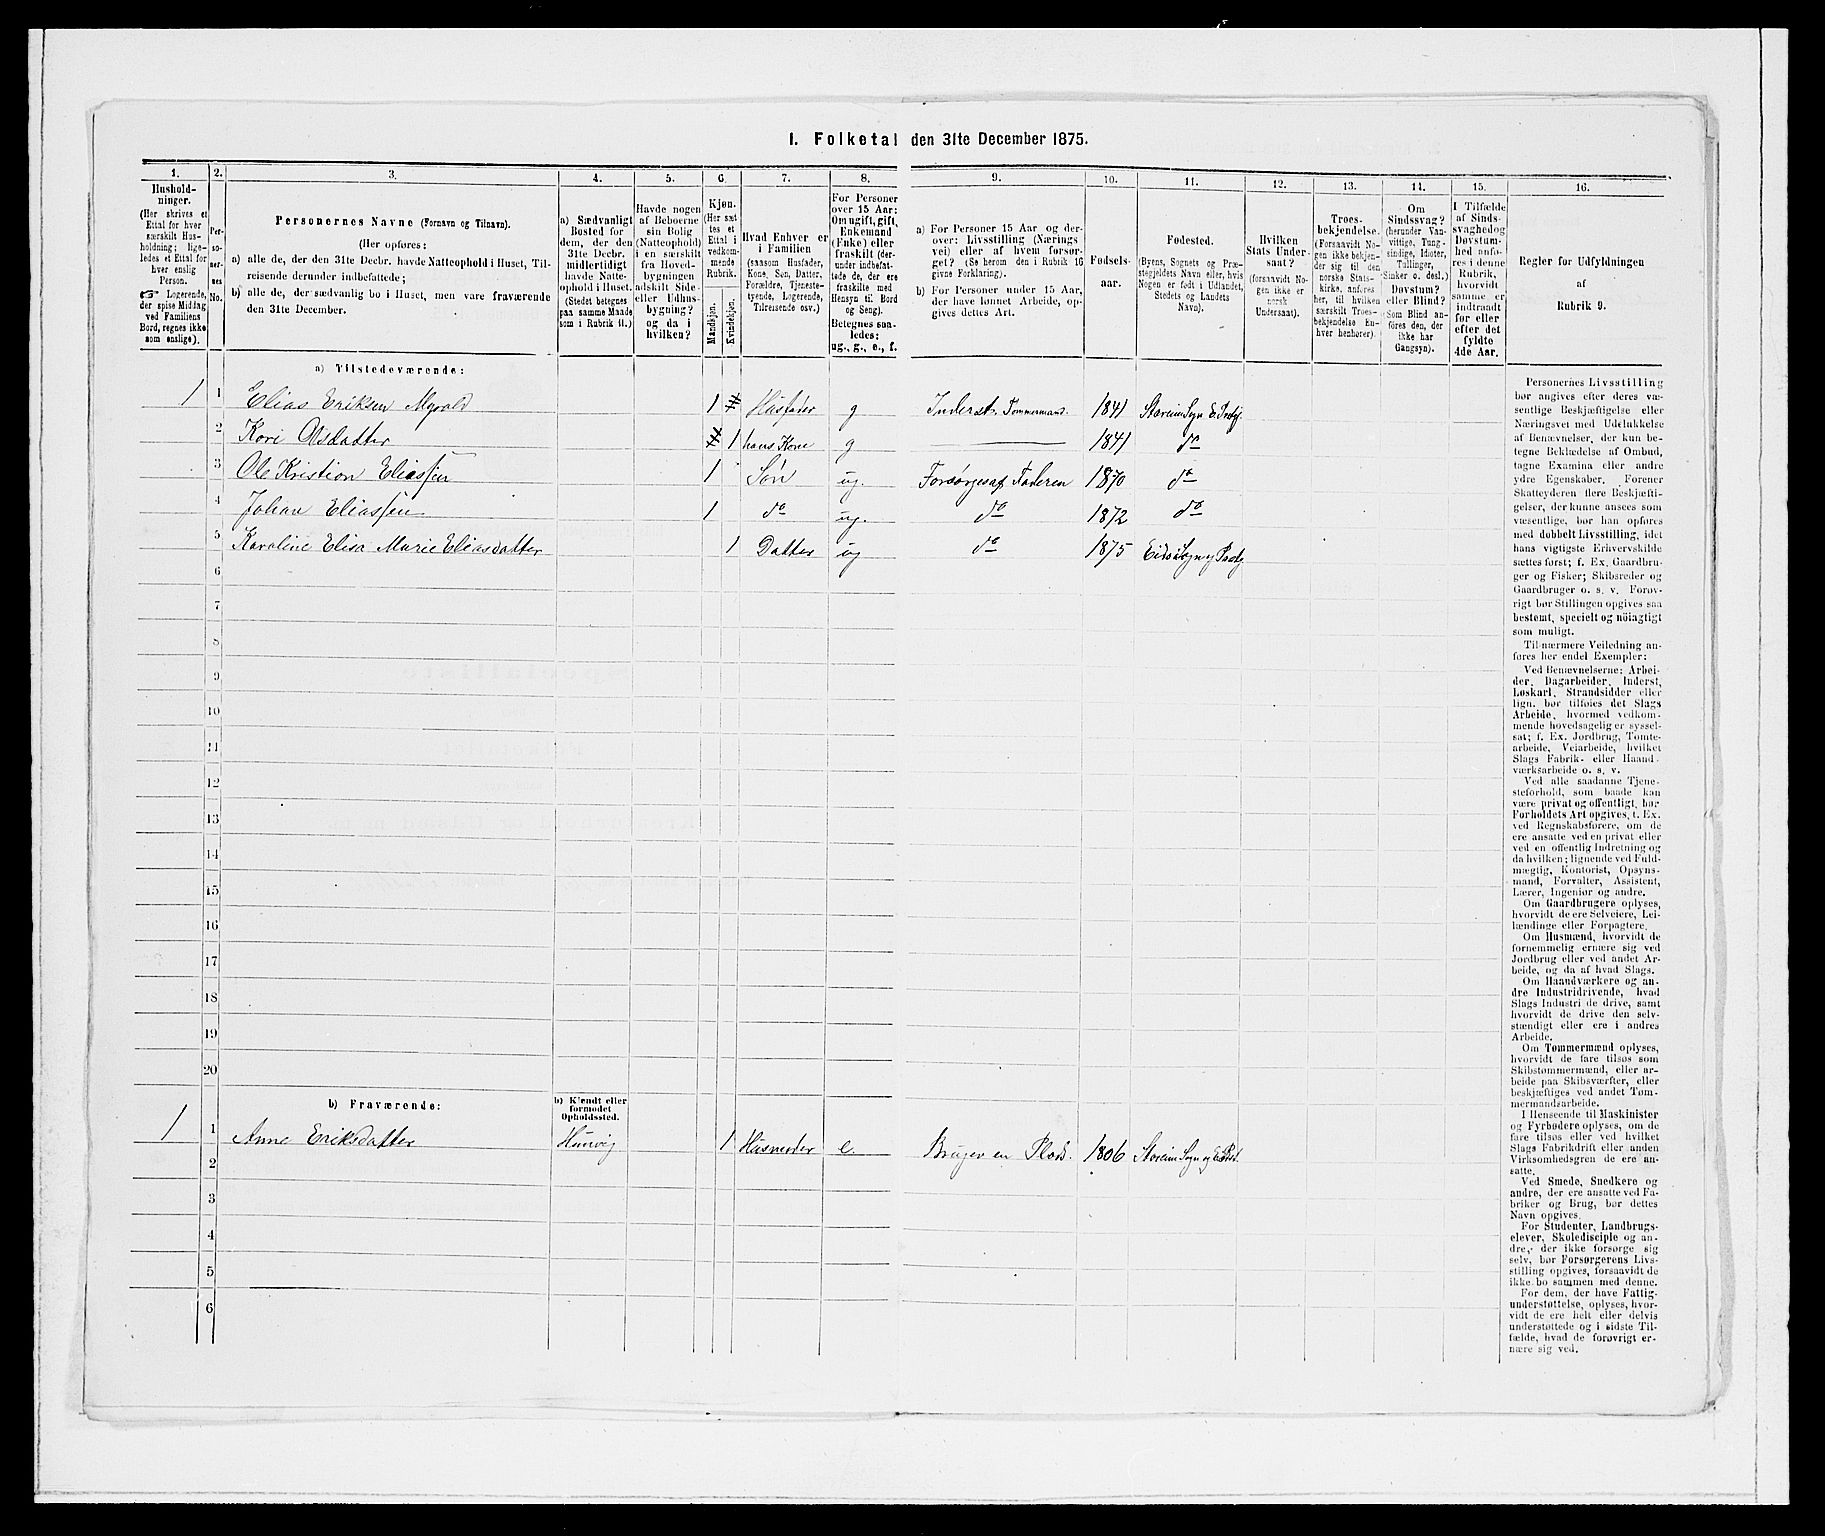 I. Folketal den 31te December 1875.
1. 2. 3. 4. 5. 6. 7. 8. 9. 10. 11. 12. 13. 14. 15. 16.
Hushold-
ninger.
(Her skrives et
Ettal for hver
særskilt Hus-
holdning; lige-
ledes et Ettal for
hver enslig
Person.
☞ Logerende,
der spise Middag
ved Familiens
Bord, regnes ikke
som enslige).
Per-
so-
ner-
nes
No.
Personernes Navne (Fornavn og Tilnavn).
(Her opføres:
a) alle de, der den 31te Decbr. havde Natteophold i Huset, Til-
reisende derunder indbefattede;
b) alle de, der sædvanlig bo i Huset, men vare fraværende
den 31te December.
a) Sædvanligt
Bosted for
dem, der den
31te Decbr.
midlertidigt
havde Natte-
ophold i Huset.
(Stedet betegnes
paa samme Maade
som i Rubrik 11.)
Havde nogen
af Beboerne
sin Bolig
(Natteophold)
i en særskilt
fra Hoved-
bygningen
adskilt Side-
eller Udhus-
bygning?
og da i
hvilken?
Kjøn.
(Her sæt
tes et
Ettal i
vedkom-
mende
Rubrik.
Mandkjøn.
Kvindekjøn.
Hvad Enhver er
i Familien
(saasom Husfader,
Kone, Søn, Datter,
Forældre, Tjeneste-
tyende, Logerende,
Tilreisende osv.)
For Personer
over 15 Aar:
Om ugift, gift,
Enkemand
(Enke) eller
fraskilt (der-
under indbefat-
tede de, der ere
fraskilte med
Hensyn til Bord
og Seng).
Betegnes saa-
ledes:
ug., g., e., f.
a) For Personer 15 Aar og der-
over: Livsstilling (Nærings
vei) eller af hvem forsør-
get? (Se herom den i Rubrik 16
givne Forklaring).
b) For Personer under 15 Aar,
der have lønnet Arbeide, op-
gives dettes Art.
Fødsels-
aar.
Fødested.
(Byens, Sognets og Præ-
stegjeldets Navn eller, hvis
Nogen er født i Udlandet,
Stedets og Landets
Navn).
Hvilken
Stats Under-
saat?
(forsaavidt No-
gen ikke er
norsk
Undersaat).
Troes-
bekjendelse.
(Forsaavidt No-
gen ikke bekjen-
der sig til den
norske Stats-
kirke, anføres
her, til hvilken
særskilt Troes-
bekjendelse En-
hver henhører).
Om
Sindssvag?
(herunder Van-
vittige, Tung-
sindige, Idioter,
Tullinger,
Sinker o. desl.)
Døvstum?
eller Blind?
(Som Blind an-
føres den, der
ikke har
Gangsyn).
I Tilfælde
af Sinds-
svaghed og
Døvstum-
hed anfø-
res i denne
Rubrik,
hvorvidt
samme er
indtraadt
før eller
efter det
fyldte
4de Aar.
Regler for Udfyldningen
af
Rubrik 9.
a) Tilstedeværende:
1 1 Elias Eriksen Myrold 1 Husfader g Inderst, Tømmermand. 1841 Storeim Sogn E. Prstgj.
2 Kari Olsdatter 1 hans Kone g 1841 do
3 Ole Kristian Eliassen 1 Søn ug. Forsørges af Faderen 1870 do
4 Johan Eliassen 1 do ug. do 1872 do
5 Karoline Elisa Marie Eliasdatter 1 Datter ug do 1875 Eids Sogn og Prstgj
6
7
8
9
10
11
12
13
14
15
16
17
18
19
20
b) Fraværende:
b) Kjendt eller
formodet
Opholdssted.
1 1 Anne Eriksdatter Hunvig 1 Husmoder e. Bruger en Plads. 1806 Storeim Sogn og E. Prst.
2
3
4
5
6
Personernes Livsstilling
bør angives efter deres væ-
sentlige Beskjæftigelse eller
Næringsvei med Udelukkelse
af Benævnelser, der kun be-
tegne Beklædelse af Ombud,
tagne Examina eller andre
ydre Egenskaber. Forener
Skatteyderen flere Beskjæfti-
gelser, der kunne ansees som
væsentlige, bør han opføres
med dobbelt Livsstilling, idet
hans vigtigste Erhvervskilde
sættes først; f. Ex. Gaardbru-
ger og Fisker; Skibsreder og
Gaardbruger o. s. v. Forøv-
rigt bør Stillingen opgives saa
bestemt, specielt og nöiagtigt
som muligt.
Til nærmere Veiledning an-
føres her endel Exempler:
Ved Benævnelserne: Arbei-
der, Dagarbeider, Inderst,
Løskarl, Strandsidder eller
lign. bør tilføies det Slags
Arbeide, hvormed vedkom-
mende hovedsagelig er syssel-
sat; f. Ex. Jordbrug, Tomte-
arbeide, Veiarbeide, hvilket
Slags Fabrik- eller Haand-
værksarbeide o. s. v.
Ved alle saadanne Tjene-
steforhold, som baade kan
være privat og offentligt, bør
Forholdets Art opgives, t. Ex.
ved Regnskabsførere, om de
ere ansatte ved en privat eller
ved en offentlig Indretning og
da hvilken; lignende ved Fuld-
mægtig, Kontorist, Opsyns-
mand, Forvalter, Assistent,
Lærer, Ingeniør og andre.
Om Gaardbrugere oplyses,
hvorvidt de ere Selveiere, Lei-
lændinge eller Forpagtere.
Om Husmænd, hvorvidt de
fornemmelig ernære sig ved
Jordbrug eller ved andet Ar-
beide, og da af hvad Slags.
Om Haandværkere og an-
dre Industridrivende, hvad
Slags Industri de drive, samt
hvorvidt de drive den selv-
stændigt eller ere i andres
Arbeide.
Om Tømmermænd oplyses,
hvorvidt de fare tilsøs som
Skibstømmermænd, eller ar-
beide paa Skibsværfter, eller
beskjæftiges ved andet Tøm-
mermandsarbeide.
I Henseende til Maskinister
og Fyrbødere oplyses, om de
fare tilsøs eller ved hvilket
Slags Fabrikdrift eller anden
Virksomhedsgren de ere an-
satte.
Ved Smede, Snedkere og
andre, der ere ansatte ved Fa-
briker og Brug, bør dettes
Navn opgives.
For Studenter, Landbrugs-
elever, Skoledisciple og an-
dre, der ikke forsørge sig
selv, bør Forsørgerens Livs-
stilling opgives, forsaavidt de
ikke bo sammen med denne.
For dem, der have Fattig-
understøttelse, oplyses, hvor-
vidt de ere helt eller delvis
understøttede og i sidste Til-
fælde, hvad de forøvrigt er-
nære sig ved.